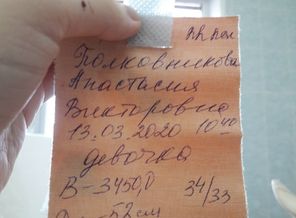 Полковникова
Анастасия
Викторовна
13.03.2020 10 40
девочка
В-3450,0 34/33
52 см